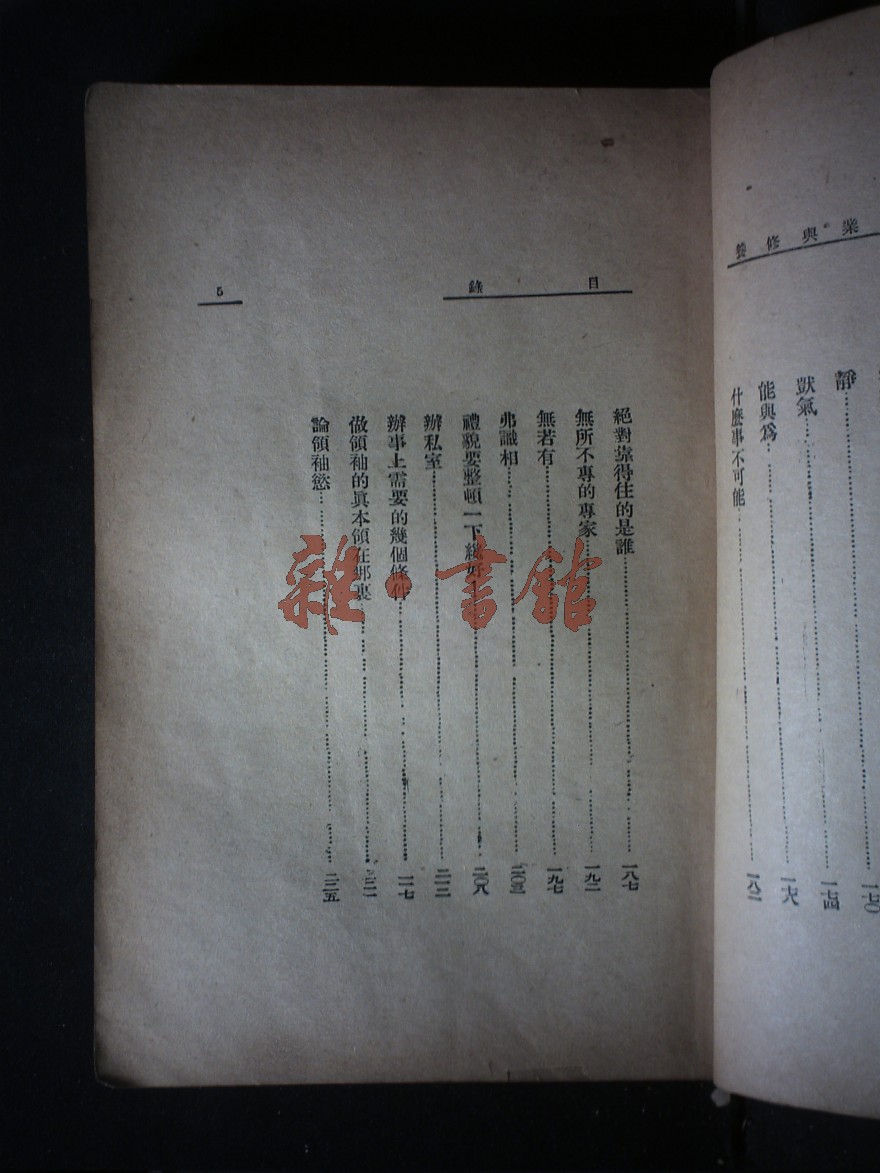 業與修養
靜 一七〇
獃氣 一七四
能與爲 一七八
什麼事不可能 一八二
目錄
絕對靠得住的是誰 一八七
無所不專的專家 一九二
無若有 一九七
弗識相 二〇三
禮貌要整頓一下纔好 二〇八
辦私室 二一二
辦事上需要的幾個條件 二一七
做領袖的眞本領在那裏 二二一
論領袖慾 二二五
5
雜·書館